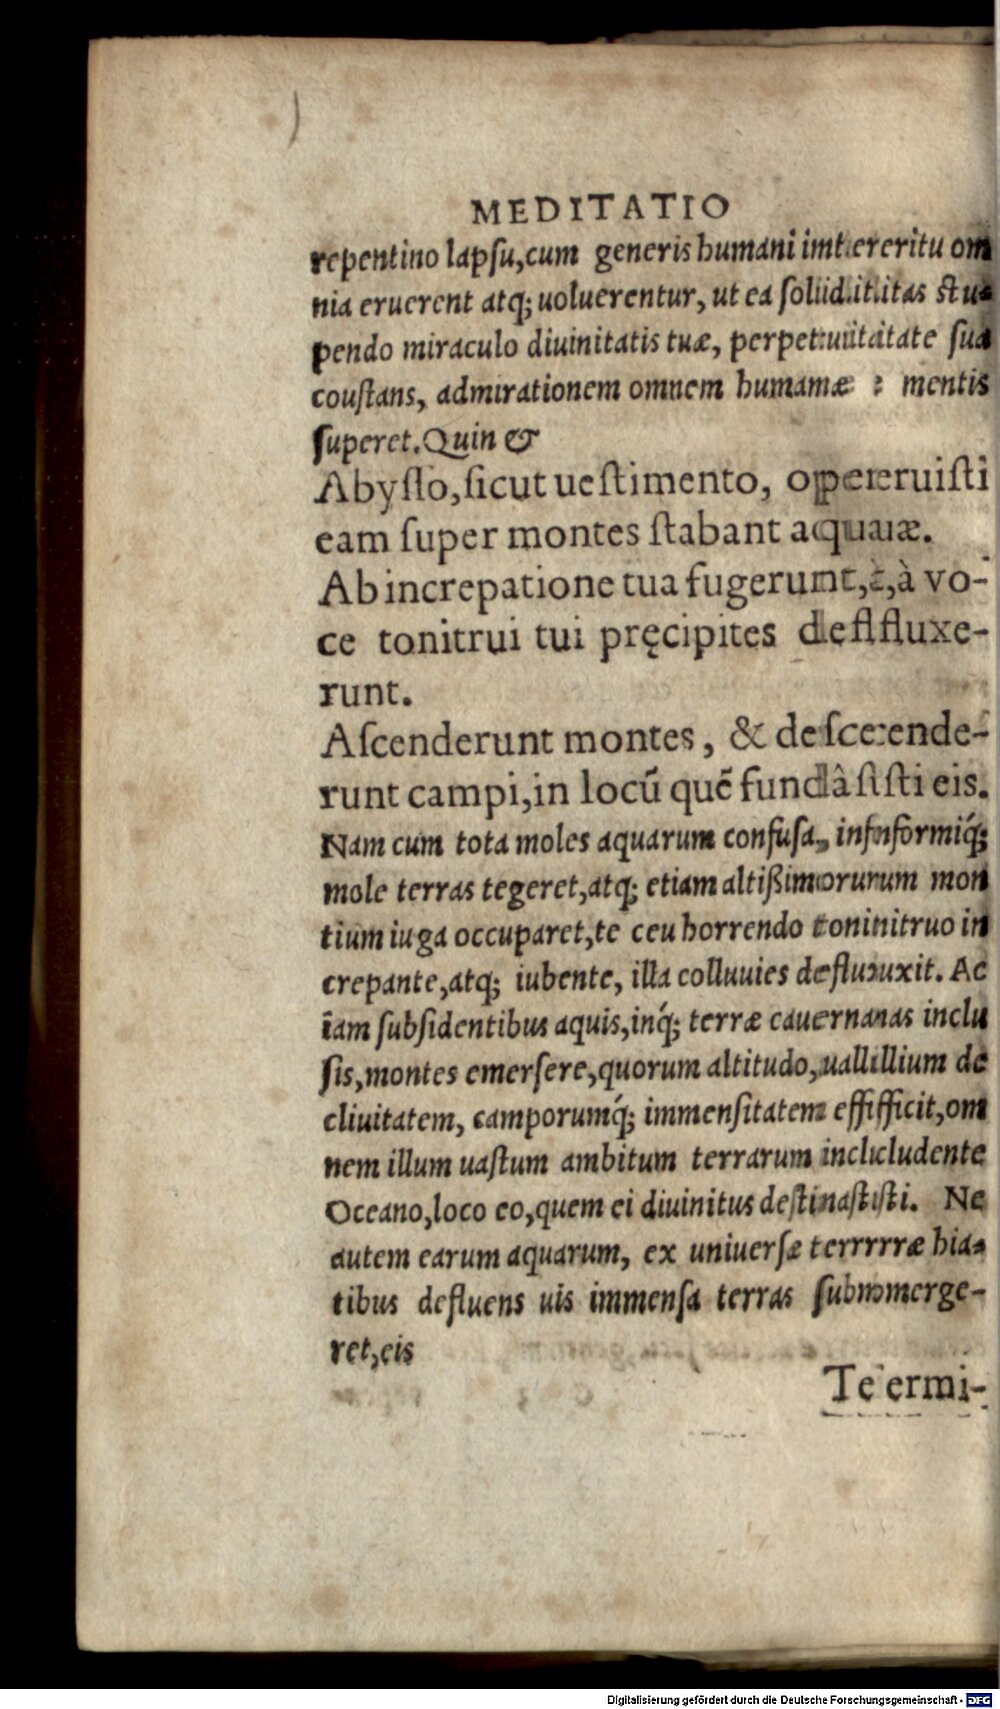 MEDITATIO
repentino lapſu,cum generis humani interitu om
nia eruerent atq; uoluerentur, ut ea ſoliditas ſtu⸗
pendo miraculo diuinitatis tuæ, perpetuitate ſua
couſtans, admirationem omnem humanæ mentis
ſuperet. Quin &
Abyſſo, ſicut ueſtimento, operuiſti
eam ſuper montes ſtabant aquæ.
Ab increpatione tua fugerunt, à vo-
ce tonitrui tui pręcipites defluxe-
runt.
Aſcenderunt montes, & deſcende-
runt campi, in locũ quẽ fundâſti eis.
Nam cum tota moles aquarum confuſa, informiq́;
mole terras tegeret, atq; etiam altißimorum mon
tium iuga occuparet, te ceu horrendo tonitruo in
crepante, atq; iubente, illa colluuies defluxit. Ac
iam ſubſidentibus aquis, inq́; terræ cauernas inclu
ſis, montes emerſere, quorum altitudo, uallium de
cliuitatem, camporumq́; immenſitatem efficit, om
nem illum uaſtum ambitum terrarum includente
Oceano, loco eo, quem ei diuinitus deſtinaſti. Ne
autem earum aquarum, ex uniuerſæ terræ hia⸗
tibus defluens uis immenſa terras ſubmerge-
ret, eis
Termi-
Digitalisierung gefördert durch die Deutsche Forschungsgemeinschaft - DFG